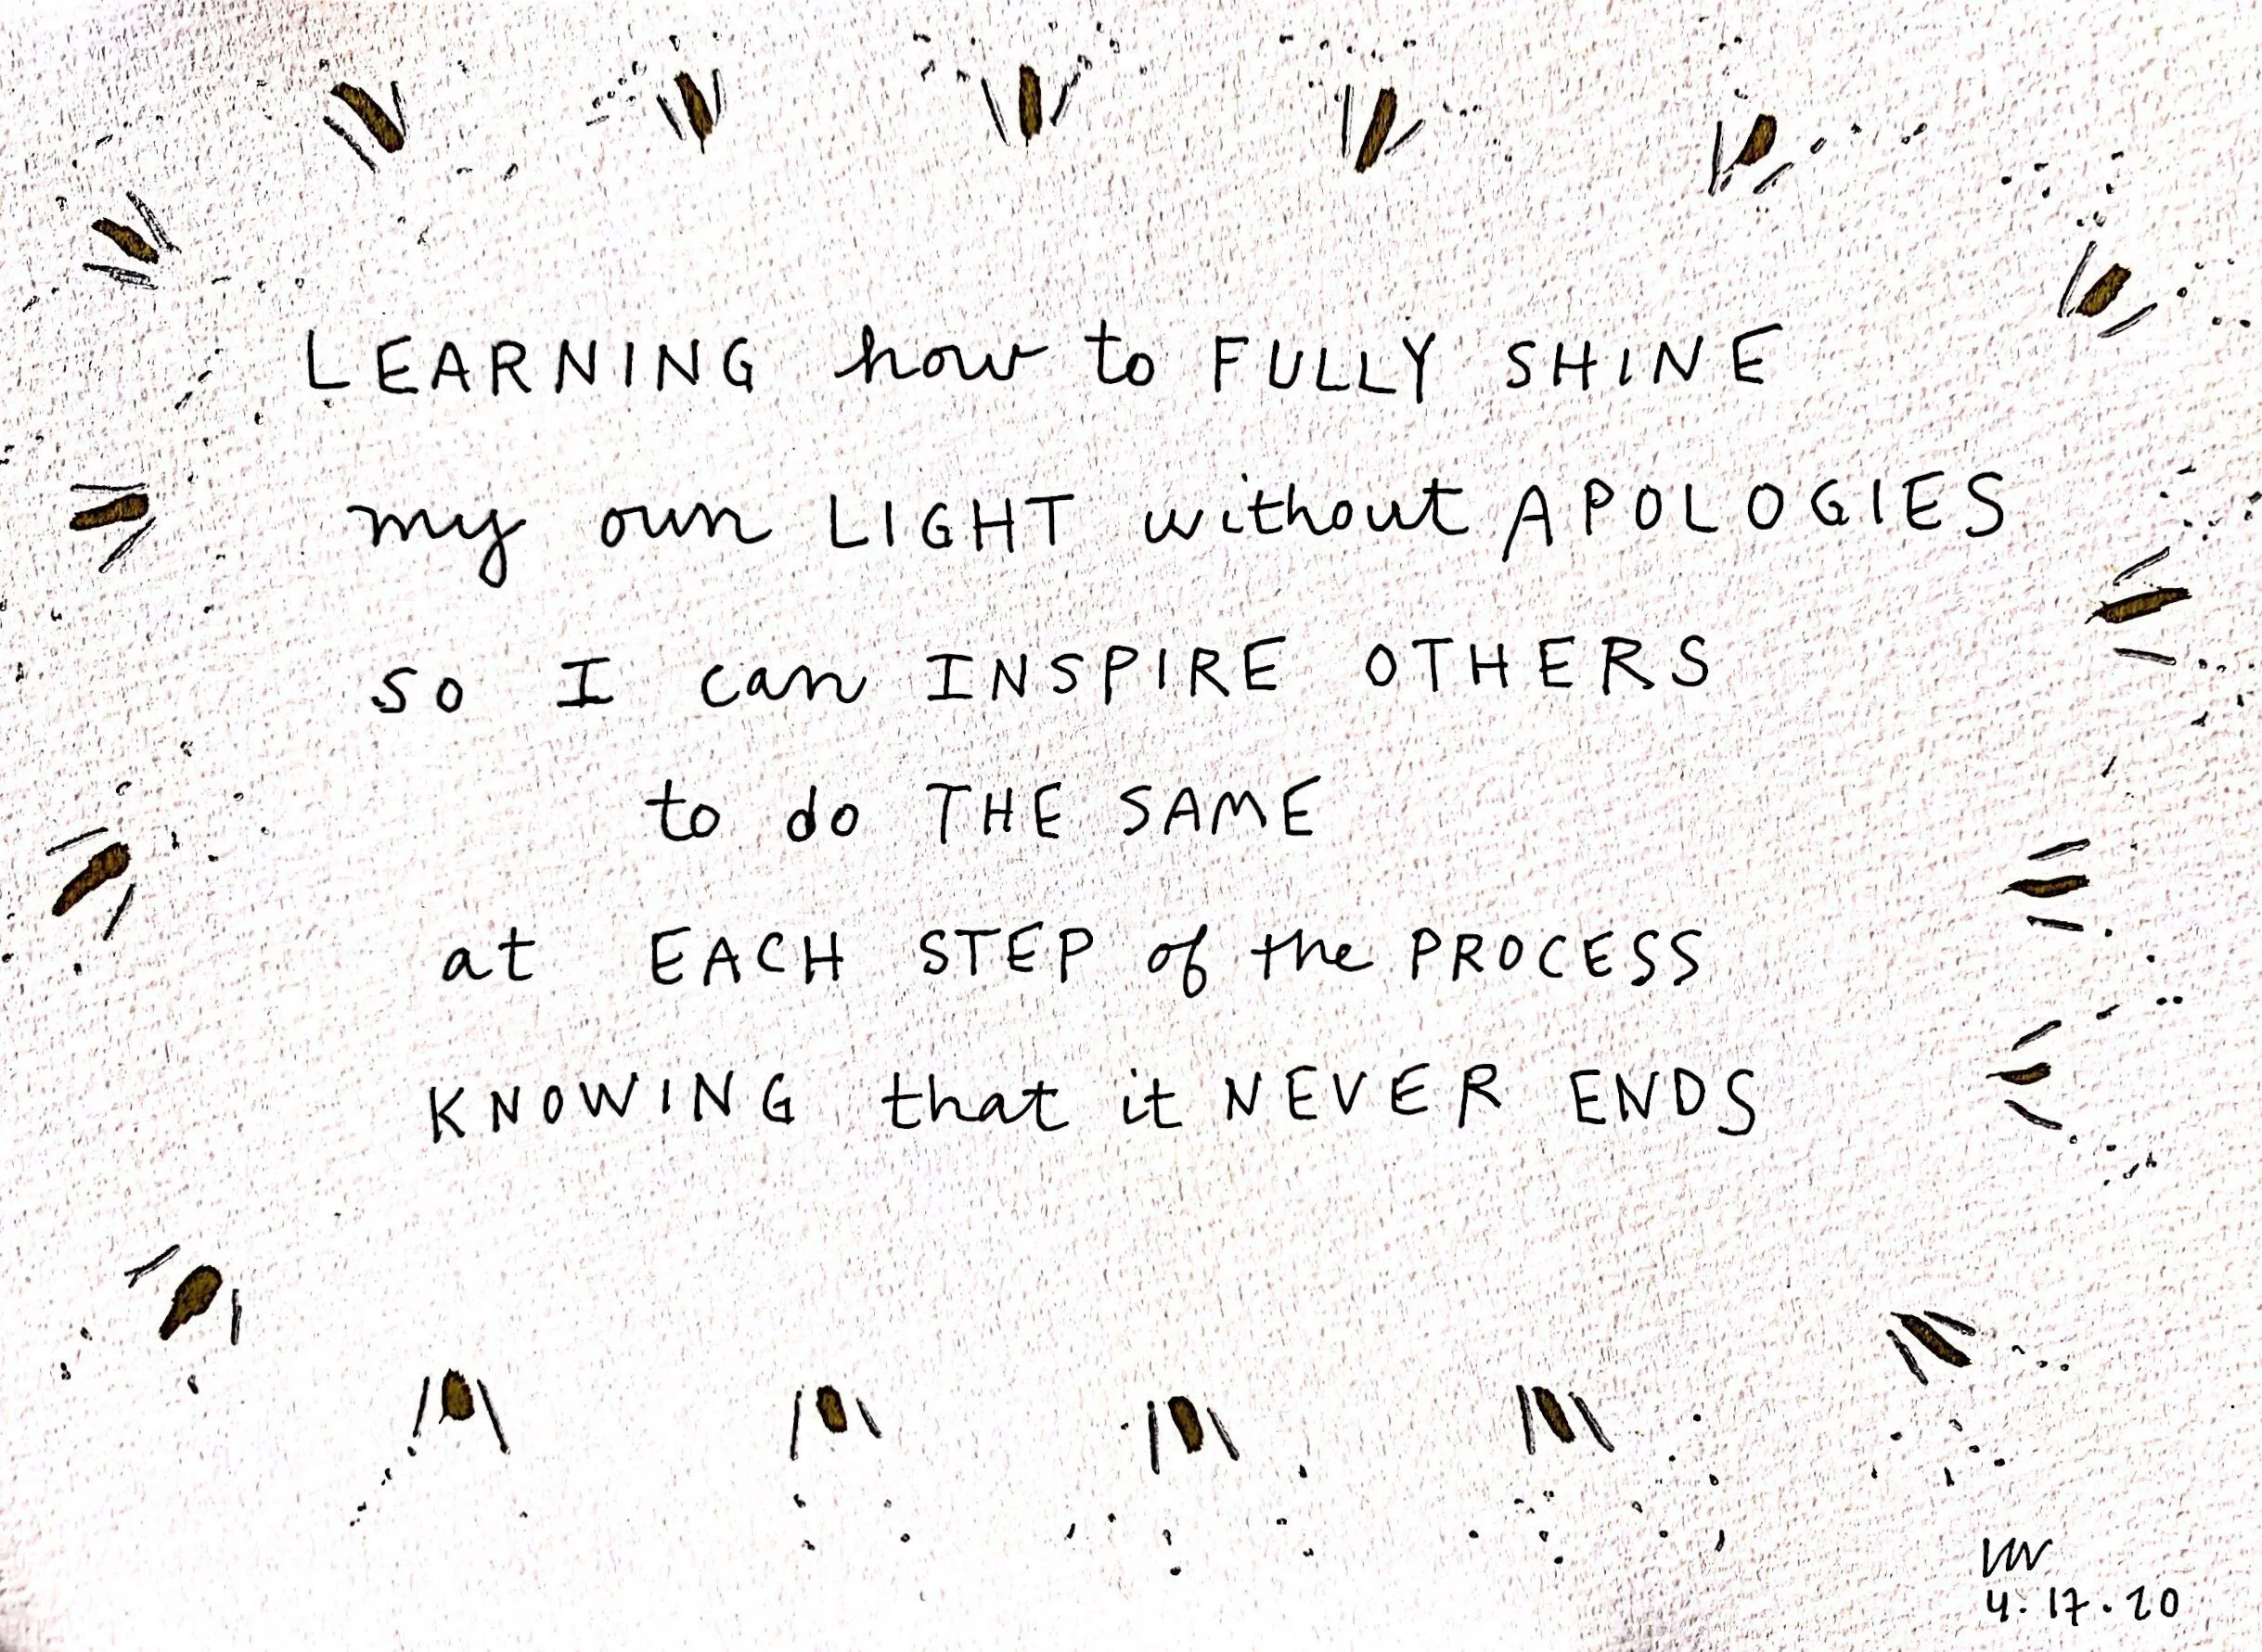 LEARNING how to FULLY SHINE
my own LIGHT without APOLOGIES
so I can INSPIRE OTHERS
to do THE SAME
at EACH STEP of the PROCESS
KNOWING that it NEVER ENDS
4.17.20